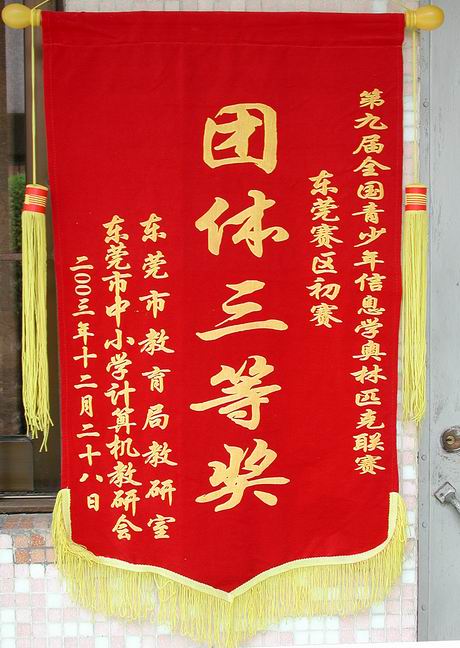 第九届全国青少年信息学奥林匹克联赛
东莞赛区初赛
团体三等奖
东莞市教育局教研室
东莞市中小学计算机教研会
二〇〇三年十二月二十八日